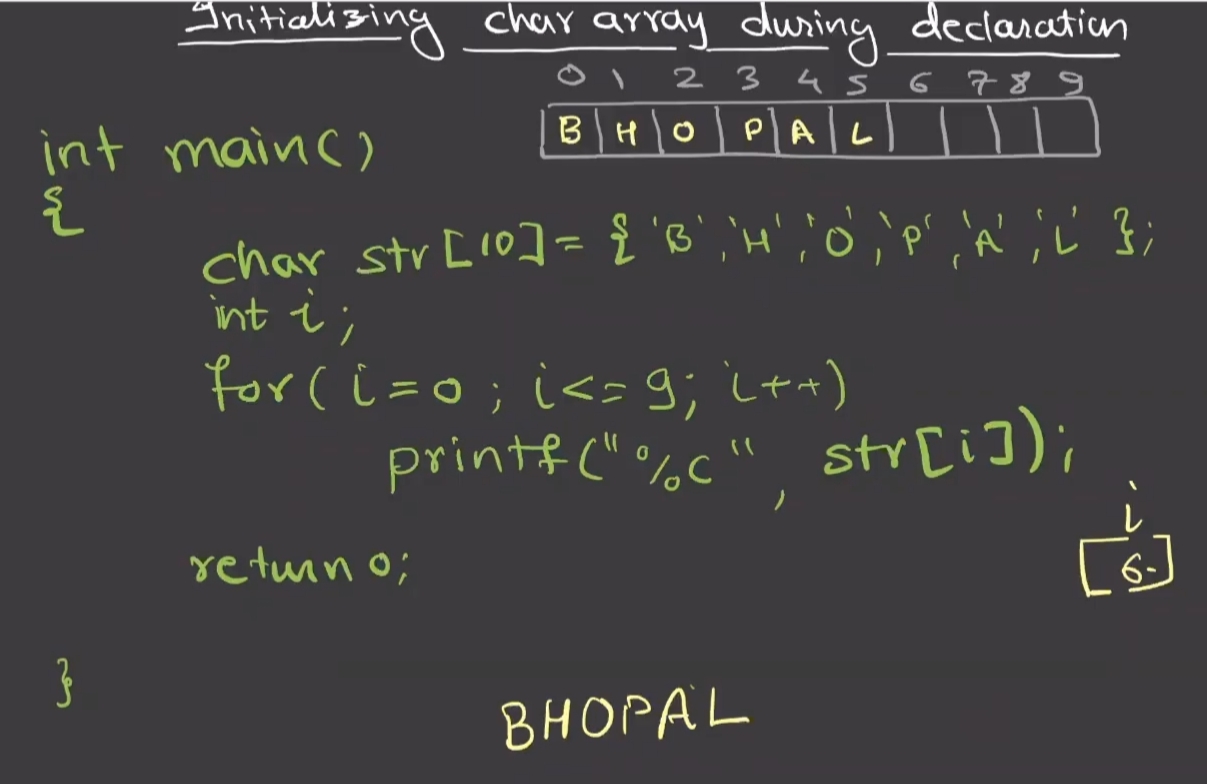 Initializing char array during declaration
0 1 2 3 4 5 6 7 8 9
B H O P A L
int main()
{
char str[10]= {'B','H','O','P','A','L'};
int i;
for(i=0; i<=9; i++)
printf("%c", str[i]);
i
6
return 0;
}
BHOPAL